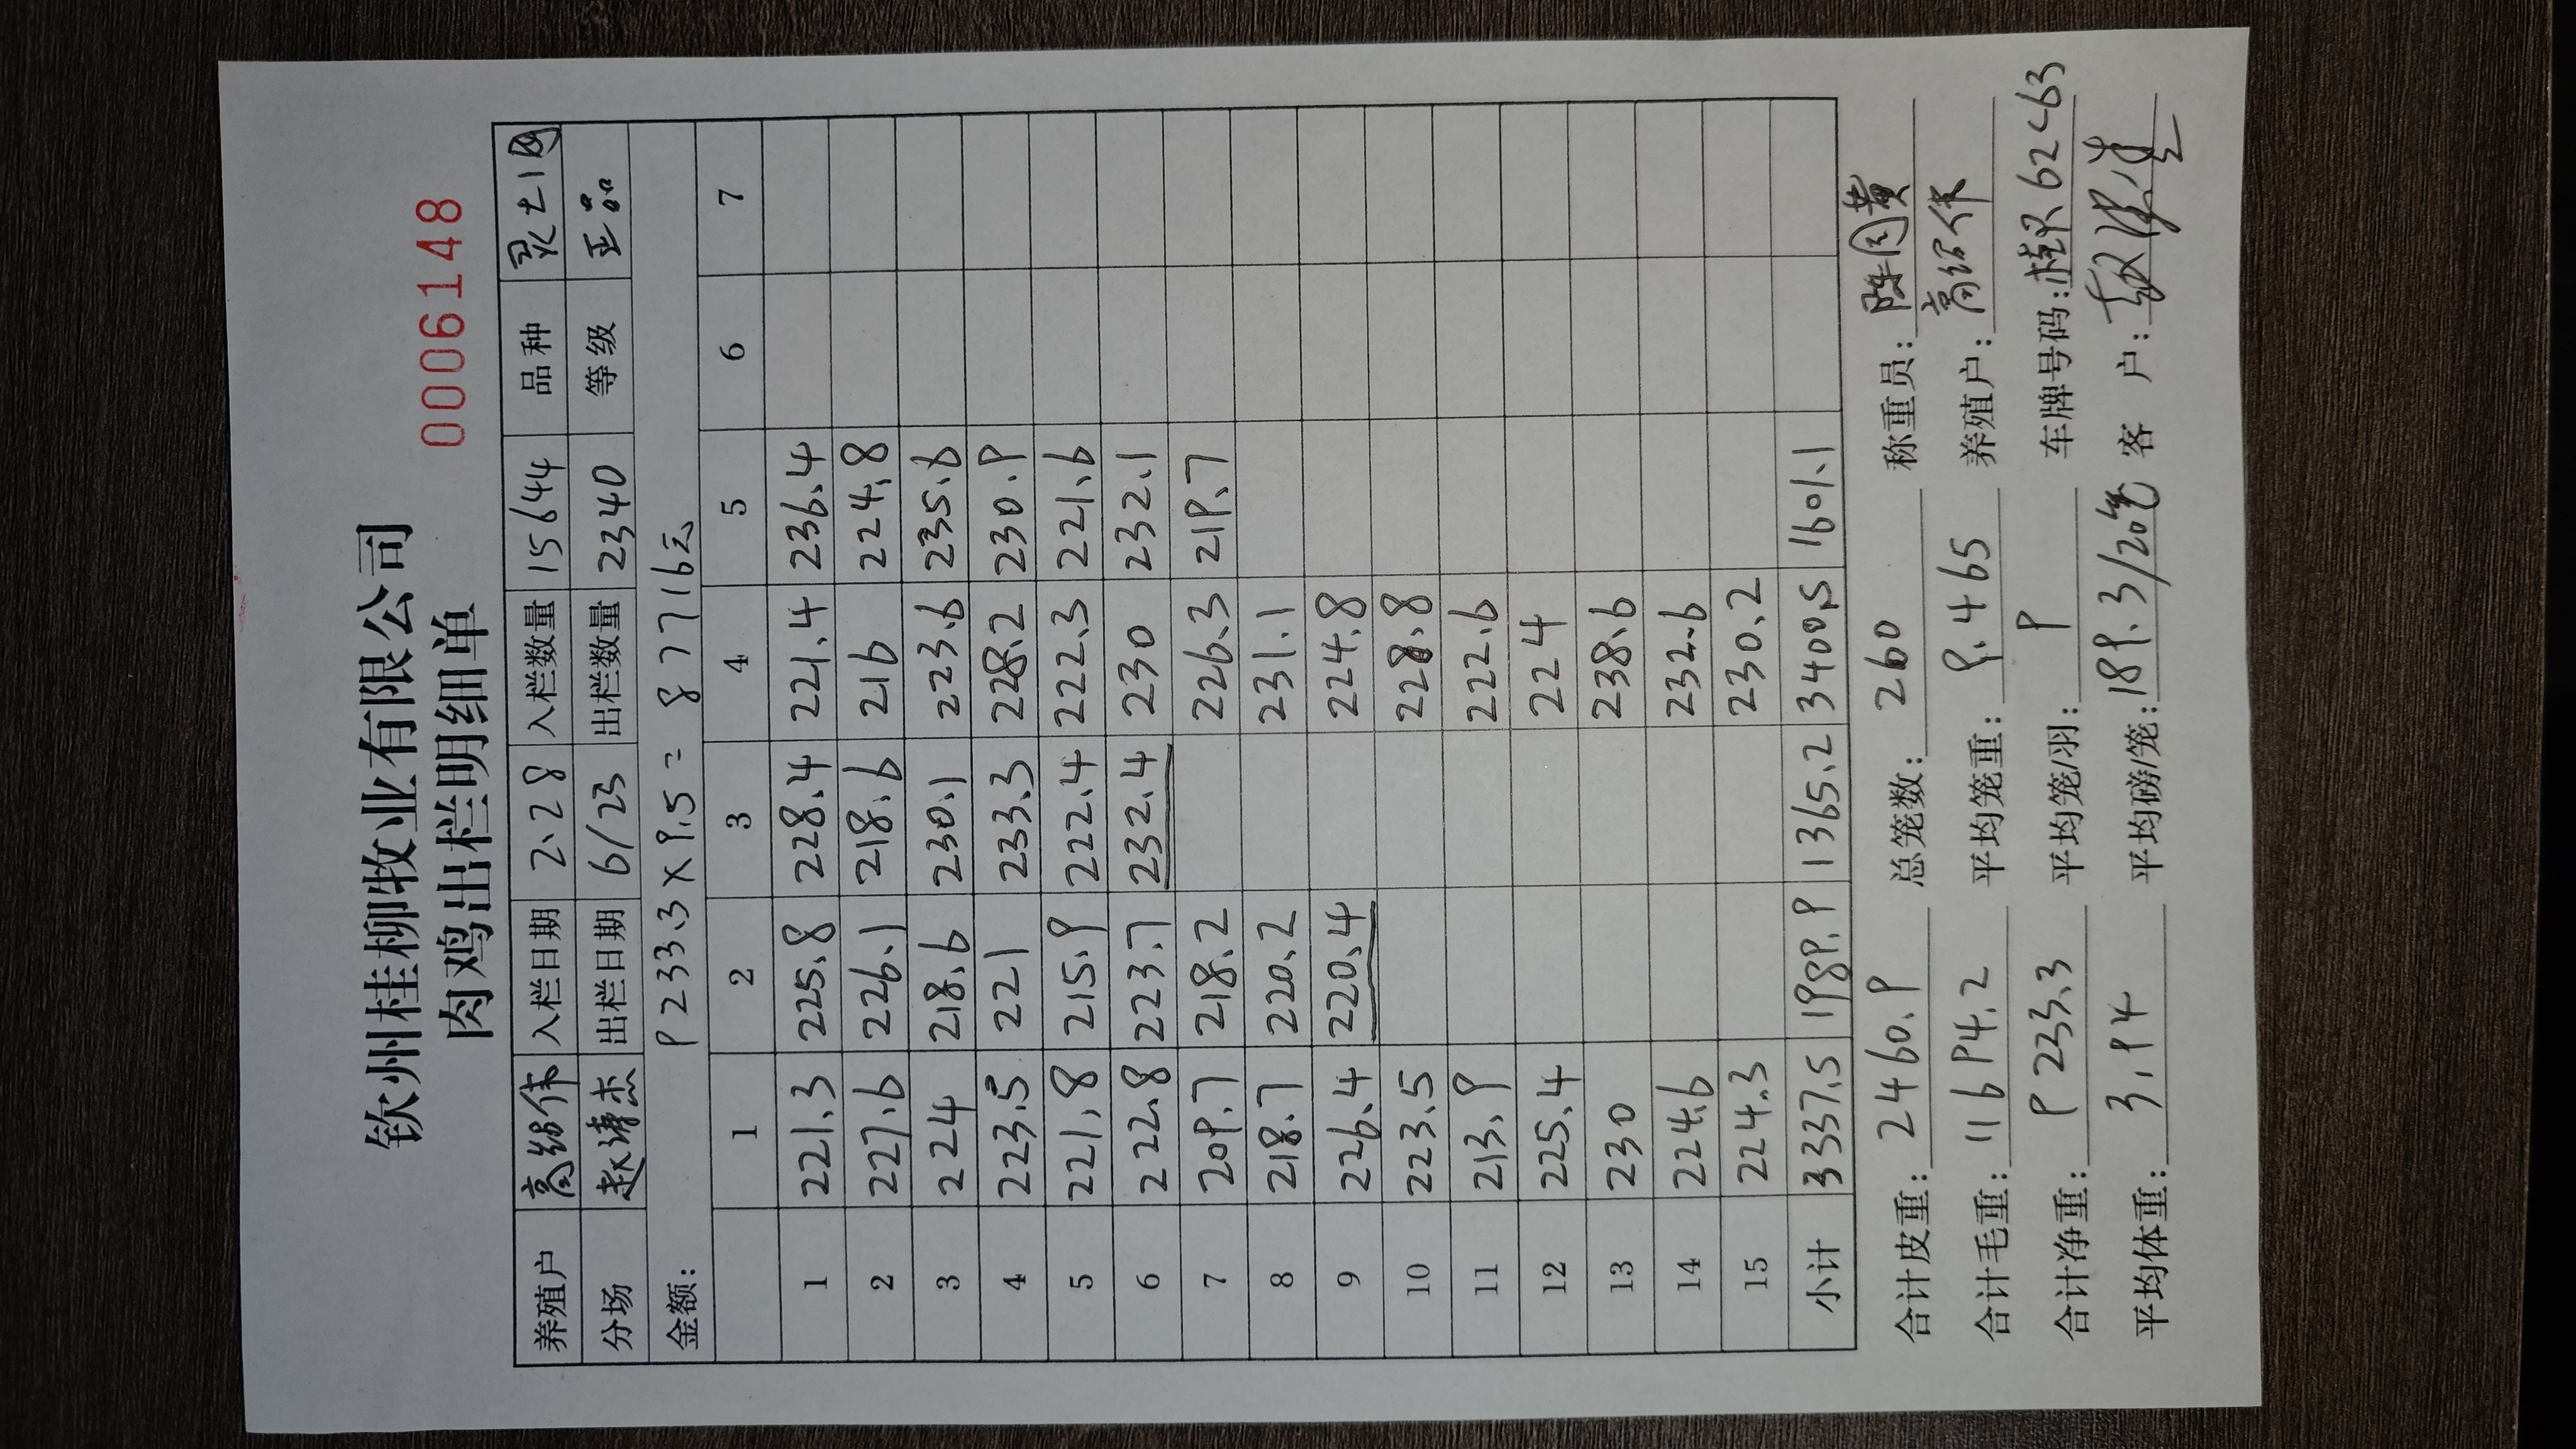 钦州桂柳牧业有限公司
肉鸡出栏明细单 0006148
养殖户 高绍作 入栏日期 2.28 入栏数量 15644 品种 灵土1
分场 赵清杰 出栏日期 6/23 出栏数量 2340 等级 正品
金额: 9233.3×9.5= 87716元
1 2 3 4 5 6 7
1 221.3 225.8 228.4 221.4 236.4
2 227.6 226.1 218.6 216 224.8
3 224 218.6 230.1 223.6 235.6
4 223.5 221 233.3 228.2 230.9
5 221.8 215.9 222.4 222.3 221.6
6 222.8 223.7 232.4 230 232.1
7 209.7 218.2 226.3 219.7
8 218.7 220.2 231.1
9 226.4 220.4 224.8
10 223.5 228.8
11 213.9 222.6
12 225.4 224
13 230 238.6
14 224.6 232.6
15 224.3 230.2
小计 3337.5 1989.9 1365.2 3400.5 1601.1
合计皮重: 2460.9 总笼数: 260 称重员: 陈国黄
合计毛重: 11694.2 平均笼重: 9.465 养殖户: 高绍作
合计净重: 9233.3 平均笼/羽: 9 车牌号码: 桂 62263
平均体重: 3.94 平均磅/笼: 189.3/20笼 客 户: